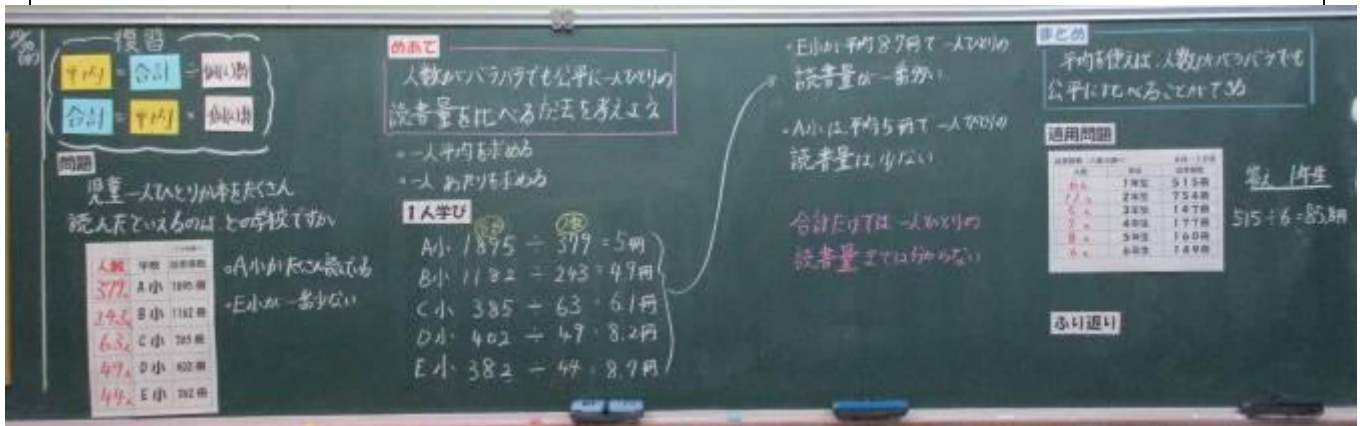 復習
平均 = 合計 ÷ 個(人)数
合計 = 平均 × 個(人)数
問題
児童一人ひとりが本をたくさん
読んだといえるのは どの学校ですか
人数 学校
379人 A小 1895冊
243人 B小 1182冊
63人 C小 385冊
49人 D小 402冊
44人 E小 382冊
・A小がたくさん読んでいる
・E小が一番少ない
めあて
人数がバラバラでも公平に一人ひとりの
読書量を比べる方法を考えよう
・一人平均を求める
・一人あたりを求める
1人学び
A小 1895 ÷ 379 = 5冊
B小 1182 ÷ 243 = 4.9冊
C小 385 ÷ 63 = 6.1冊
D小 402 ÷ 49 = 8.2冊
E小 382 ÷ 44 = 8.7冊
・E小が平均8.7冊で一人ひとりの
読書量が一番多い
・A小は平均5冊で一人ひとりの
読書量は少ない
合計だけでは一人ひとりの
読書量までは分からない
まとめ
平均を使えば、人数がバラバラでも
公平に比べることができる
適用問題
6人 1年生 515冊
2年生 754冊
3年生 147冊
4年生 177冊
8人 5年生 160冊
6人 6年生 149冊
答え 1年生
515÷6=85.8冊
ふり返り